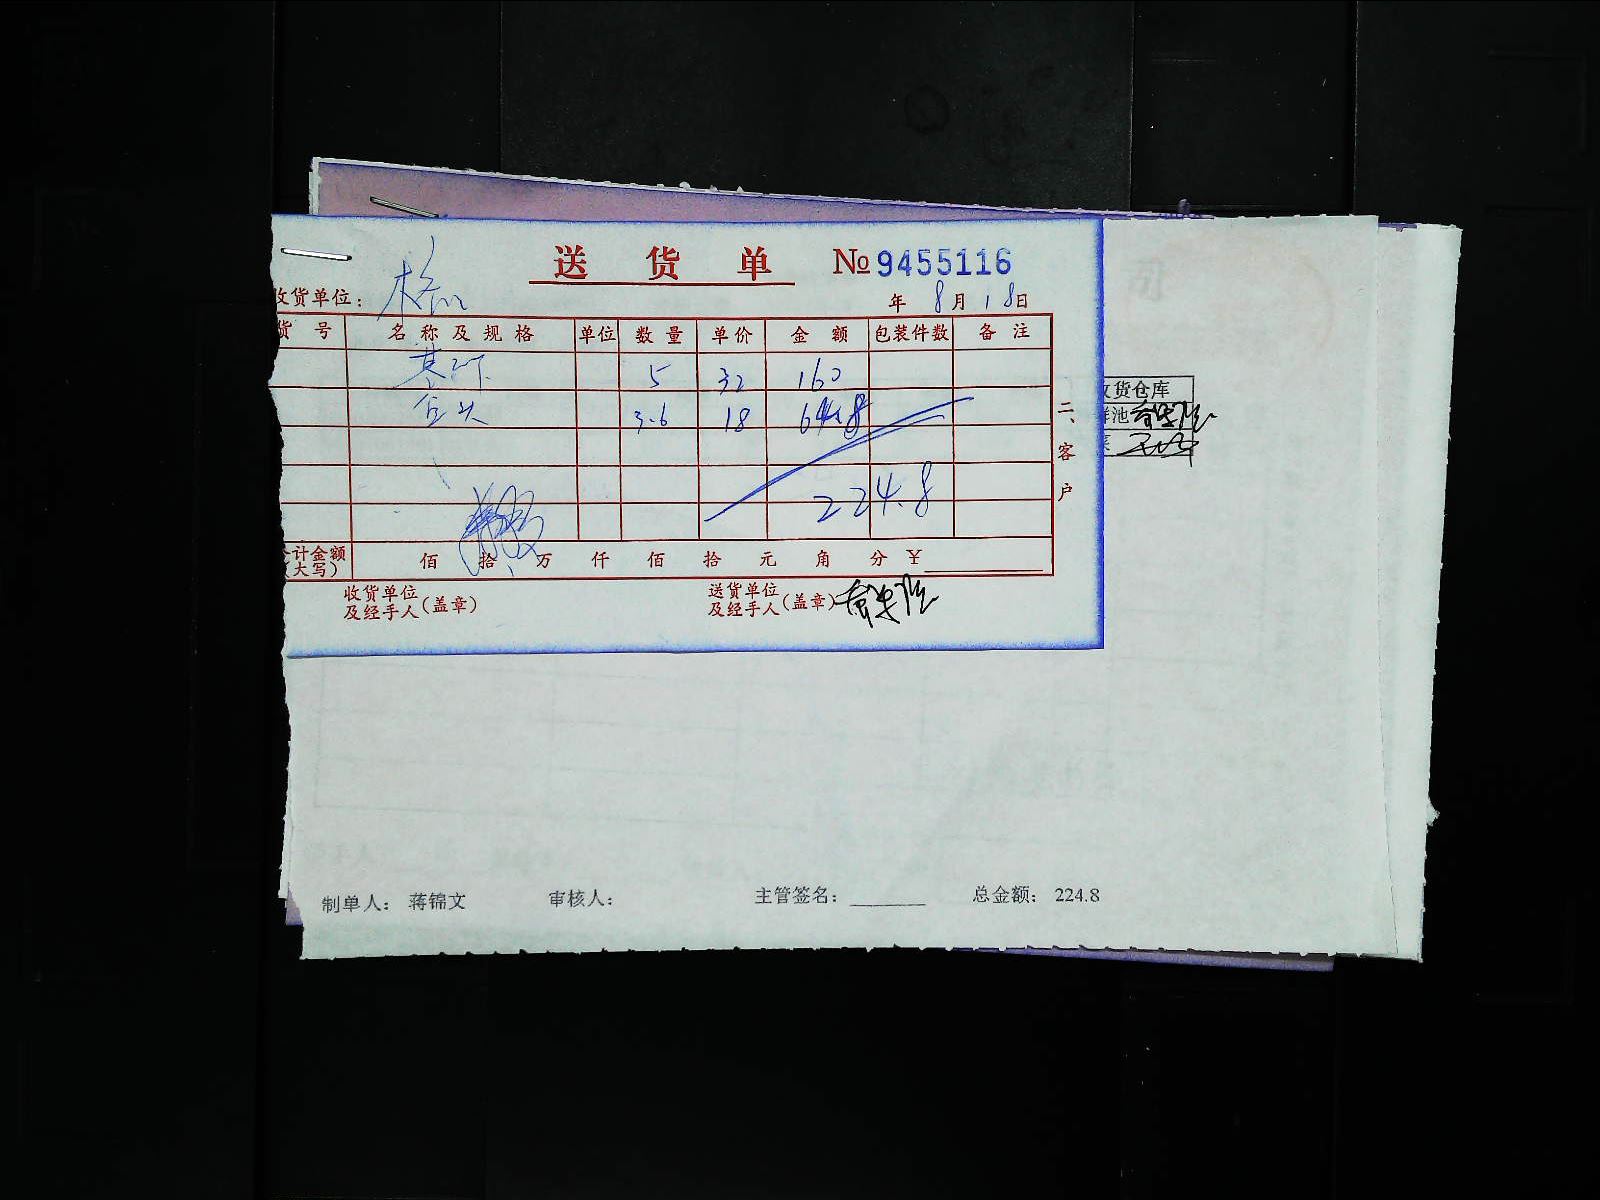 送货单 №9455116
收货单位：
年 8月18日
货号 名称及规格 单位 数量 单价 金额 包装件数 备注
基 5 32 160
3.6 18 64.8
224.8
合计金额(大写) 佰 拾 万 仟 佰 拾 元 角 分 ¥
收货单位及经手人(盖章) 送货单位及经手人(盖章)
二、客户
收货仓库
鲜池
制单人： 蒋锦文 审核人： 主管签名： 总金额： 224.8